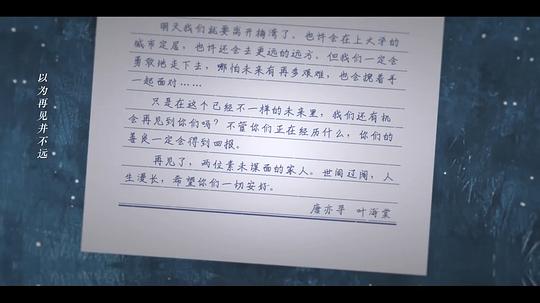 以为再见并不远
明天我们就要离开梅湾了，也许会在上大学的
城市定居，也许还会去更远的远方。但我们一定会
勇敢地走下去，哪怕未来有再多艰难，也会携着手
一起面对……
只是在这个已经不一样的未来里，我们还有机
会再见到你们吗？不管你们正在经历什么，你们的
善良一定会得到回报。
再见了，两位素未谋面的家人。世间辽阔，人
生漫长，希望你们一切安好。
唐亦寻 叶海棠